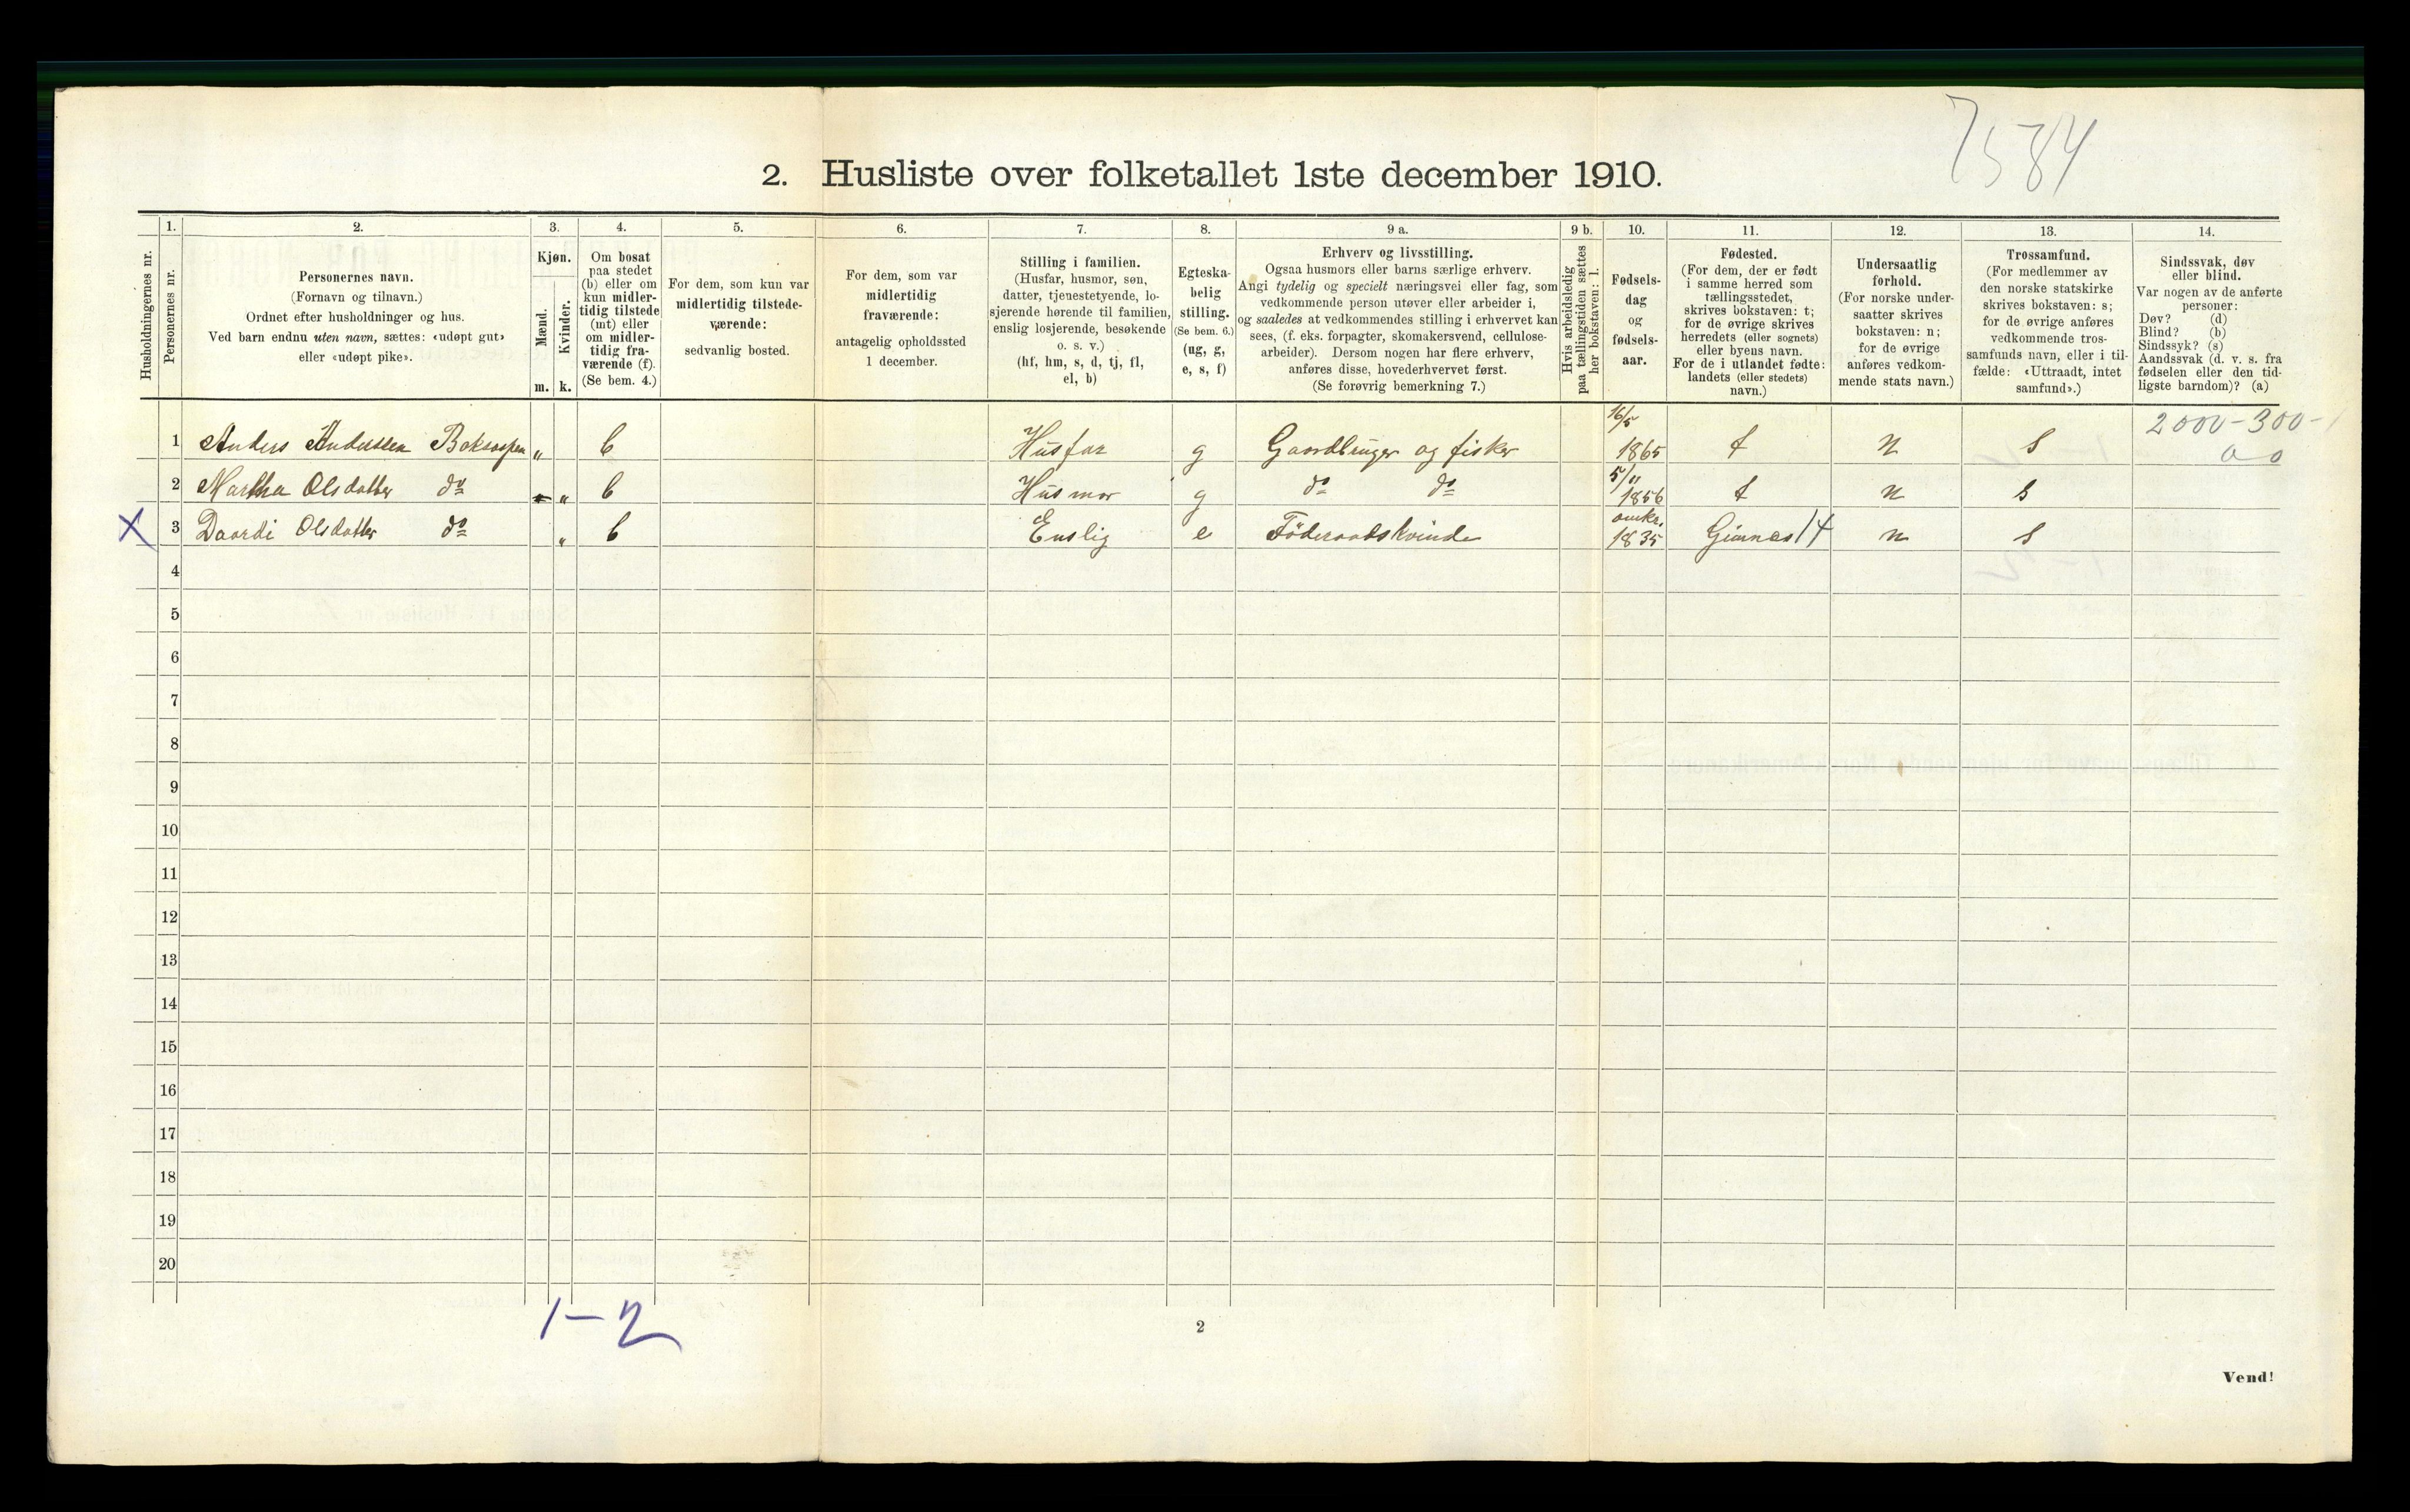 7584
2. Husliste over folketallet 1ste december 1910.
Husholdningernes nr.
1. Personernes nr.
2. Personernes navn. (Fornavn og tilnavn.) Ordnet efter husholdninger og hus. Ved barn endnu uten navn, sættes: «udøpt gut» eller «udøpt pike».
3. Kjøn. Mænd. m. Kvinder. k.
4. Om bosat paa stedet (b) eller om kun midlertidig tilstede (mt) eller om midlertidig fraværende (f). (Se bem. 4.)
5. For dem, som kun var midlertidig tilstedeværende: sedvanlig bosted.
6. For dem, som var midlertidig fraværende: antagelig opholdssted 1 december.
7. Stilling i familien. (Husfar, husmor, søn, datter, tjenestetyende, losjerende hørende til familien, enslig losjerende, besøkende o. s. v.) (hf, hm, s, d, tj, fl, el, b)
8. Egteskabelig stilling. (Se bem. 6.) (ug, g, e, s, f)
9 a. Erhverv og livsstilling. Ogsaa husmors eller barns særlige erhverv. Angi tydelig og specielt næringsvei eller fag, som vedkommende person utøver eller arbeider i, og saaledes at vedkommendes stilling i erhvervet kan sees, (f. eks. forpagter, skomakersvend, cellulosearbeider). Dersom nogen har flere erhverv, anføres disse, hovederhvervet først. (Se forøvrig bemerkning 7.)
9 b. Hvis arbeidsledig paa tællingstiden sættes her bokstaven: l.
10. Fødselsdag og fødselsaar.
11. Fødested. (For dem, der er født i samme herred som tællingsstedet, skrives bokstaven: t; for de øvrige skrives herredets (eller sognets) eller byens navn. For de i utlandet fødte: landets (eller stedets) navn.)
12. Undersaatlig forhold. (For norske undersaatter skrives bokstaven: n; for de øvrige anføres vedkommende stats navn.)
13. Trossamfund. (For medlemmer av den norske statskirke skrives bokstaven: s; for de øvrige anføres vedkommende trossamfunds navn, eller i tilfælde: «Uttraadt, intet samfund».)
14. Sindssvak, døv eller blind. Var nogen av de anførte personer: Døv? (d) Blind? (b) Sindssyk? (s) Aandssvak (d. v. s. fra fødselen eller den tidligste barndom)? (a)
1 Anders Anderssen " b Husfar g Gaardbruger og fisker 16/5 1865 t n s 2000-300-
2 Martha Olsdatter do " b Husmor g do do 5/11 1856 t n s
X 3 Daardi Olsdatter do " b Enslig e Föderaadskvinde omkr. 1835 Gimnes 14 n s
4
5
6
7
8
9
10
11
12
13
14
15
16
17
18
19
20
1-2
2
Vend!